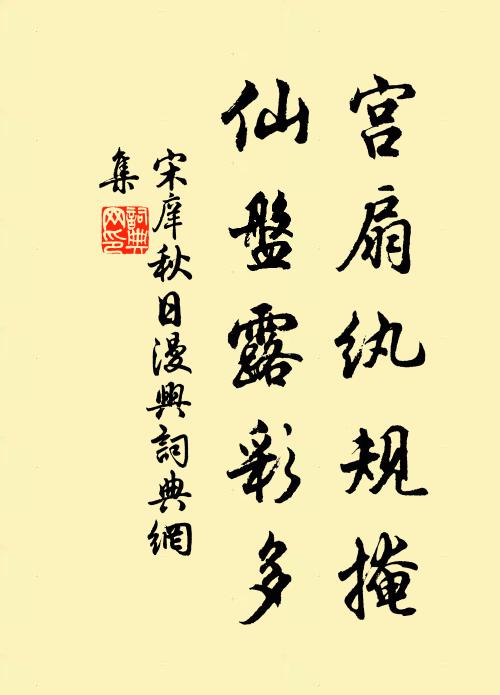 宫扇纨规掩
仙盘露彩多
宋庠秋日漫興詞典網
集
詞典
网印